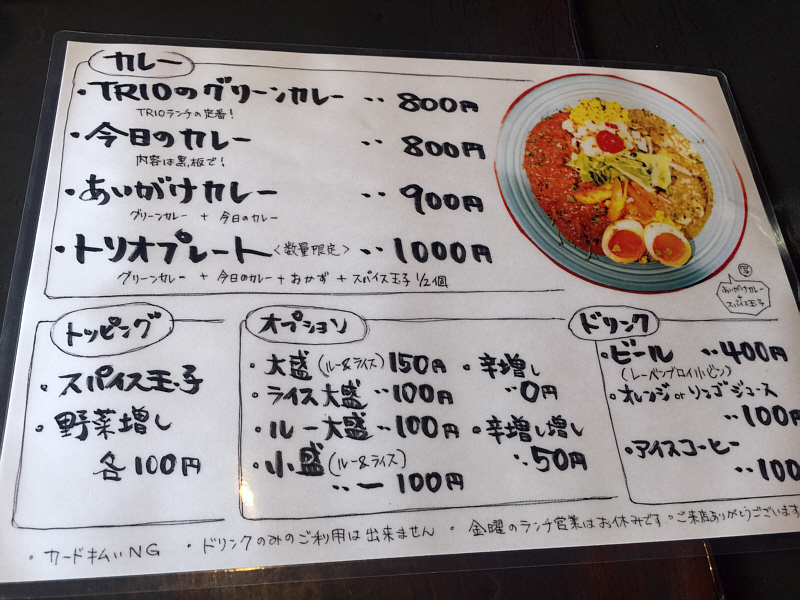 カレー
・TRIOのグリーンカレー ・・ 800円
TRIOランチの定番!
・今日のカレー ・・ 800円
内容は黒板で!
・あいがけカレー ・・ 900円
グリーンカレー + 今日のカレー
・トリオプレート<数量限定> ・・ 1000円
グリーンカレー + 今日のカレー + おかず + スパイス玉子 1/2個
写
あいがけカレー
+
スパイス玉子
トッピング
・スパイス玉子
・野菜増し
各100円
オプション
・大盛(ルー&ライス) 150円
・ライス大盛 ・・100円
・ルー大盛 ・・100円
・小盛(ルー&ライス)
・・ー100円
・辛増し
・・0円
・辛増し増し
・・50円
ドリンク
・ビール ・・400円
(レーベンブロイ小ビン)
・オレンジorリンゴジュース
・・100円
・アイスコーヒー
・・100
・カード払いNG ・ドリンクのみのご利用は出来ません ・金曜のランチ営業はお休みです ・ご来店ありがとうございます